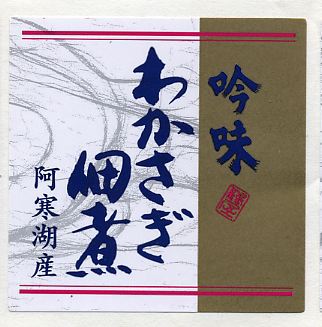 吟味
わかさぎ
佃煮
阿寒湖産